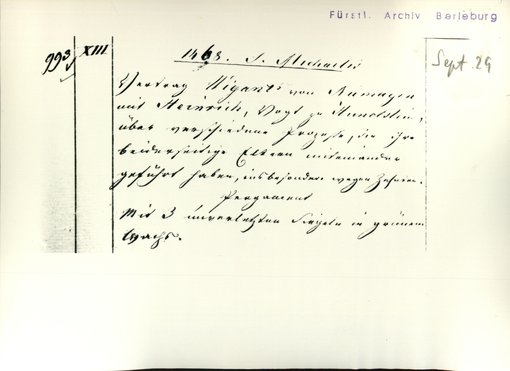 Fürstl. Archiv Berleburg
993/ XIII.
1463. S. Michaelis
Sept. 29
Vertrag Wigants von Ramagen
mit Heinrich, Vogt zu Hunolstein,
über verschiedene Prozesse, die ihre
beiderseitige Eltern miteinander
geführt haben, insbesondere wegen Zehnten.
Pergament
Mit 3 unverletzten Siegeln in grünem
Wachs.